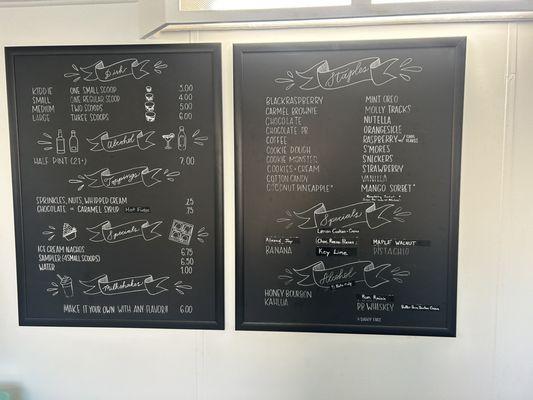 Dish
KIDDIE ONE SMALL SCOOP 3.00
SMALL ONE REGULAR SCOOP 4.00
MEDIUM TWO SCOOPS 5.00
LARGE THREE SCOOPS 6.00
Alcohol
HALF PINT (21+) 7.00
Toppings
SPRINKLES, NUTS, WHIPPED CREAM .25
CHOCOLATE or CARAMEL SYRUP Hot Fudge .75
Specials
ICE CREAM NACHOS 6.75
SAMPLER (4 SMALL SCOOPS) 6.50
WATER 1.00
Milkshakes
MAKE IT YOUR OWN WITH ANY FLAVOR!! 6.00
Staples
BLACK RASPBERRY MINT OREO
CARMEL BROWNIE MOLLY TRACKS
CHOCOLATE NUTELLA
CHOCOLATE PB ORANGESICLE
COFFEE RASPBERRY W/
COOKIE DOUGH S'MORES
COOKIE MONSTER SNICKERS
COOKIES + CREAM STRAWBERRY
COTTON CANDY VANILLA
COCONUT PINEAPPLE* MANGO SORBET*
Specials
Lemon Cookies + Creme
Almond Joy MAPLE WALNUT
BANANA Key Lime PISTACHIO
Alcohol
HONEY BOURBON Rum Raisin
KAHLUA PB WHISKEY
* DAIRY FREE